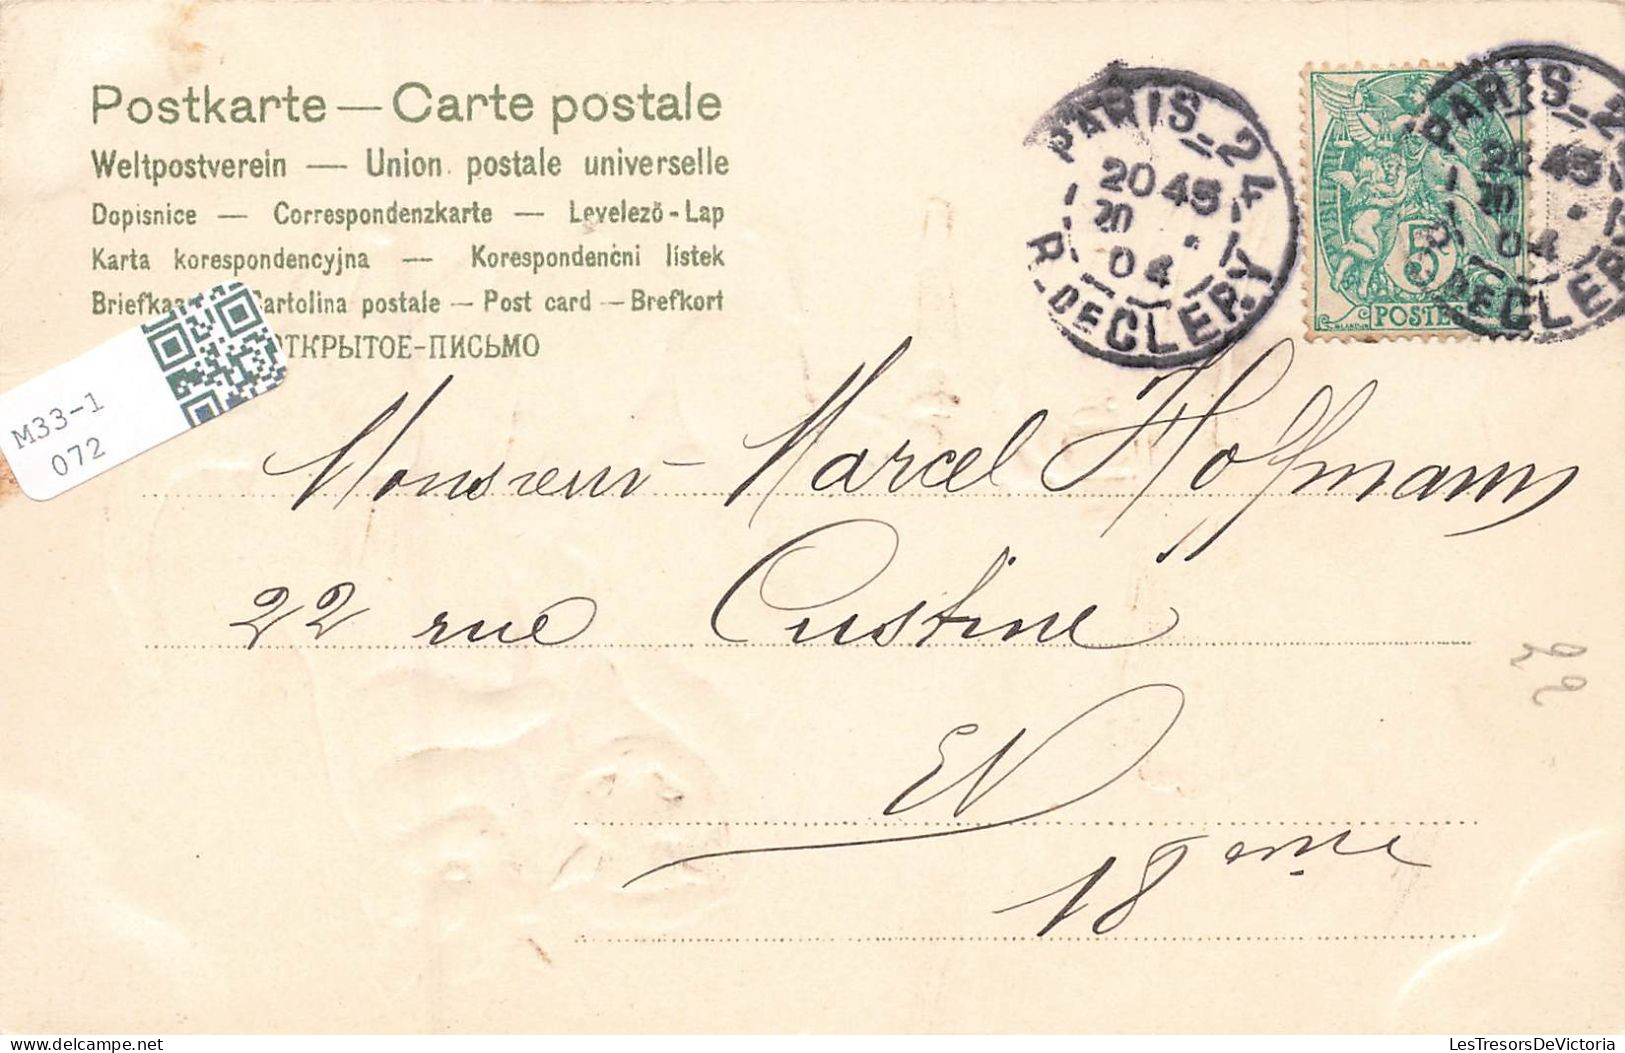 Postkarte — Carte postale
Weltpostverein — Union postale universelle
Dopisnice — Correspondenzkarte — Levelező-Lap
Karta korespondencyjna — Korespondenčni lístek
Briefka Cartolina postale — Post card — Brefkort
ОТКРЫТОЕ-ПИСЬМО
M33-1
072
PARIS_24
20 45
20
04
R. DE CLERY
PARIS_2
45
20
04
DE CLER
5c
POSTES
Monsieur Marcel Hofmann
22 rue Custine
EV
18eme
22
delcampe.net
LesTresorsDeVictoria